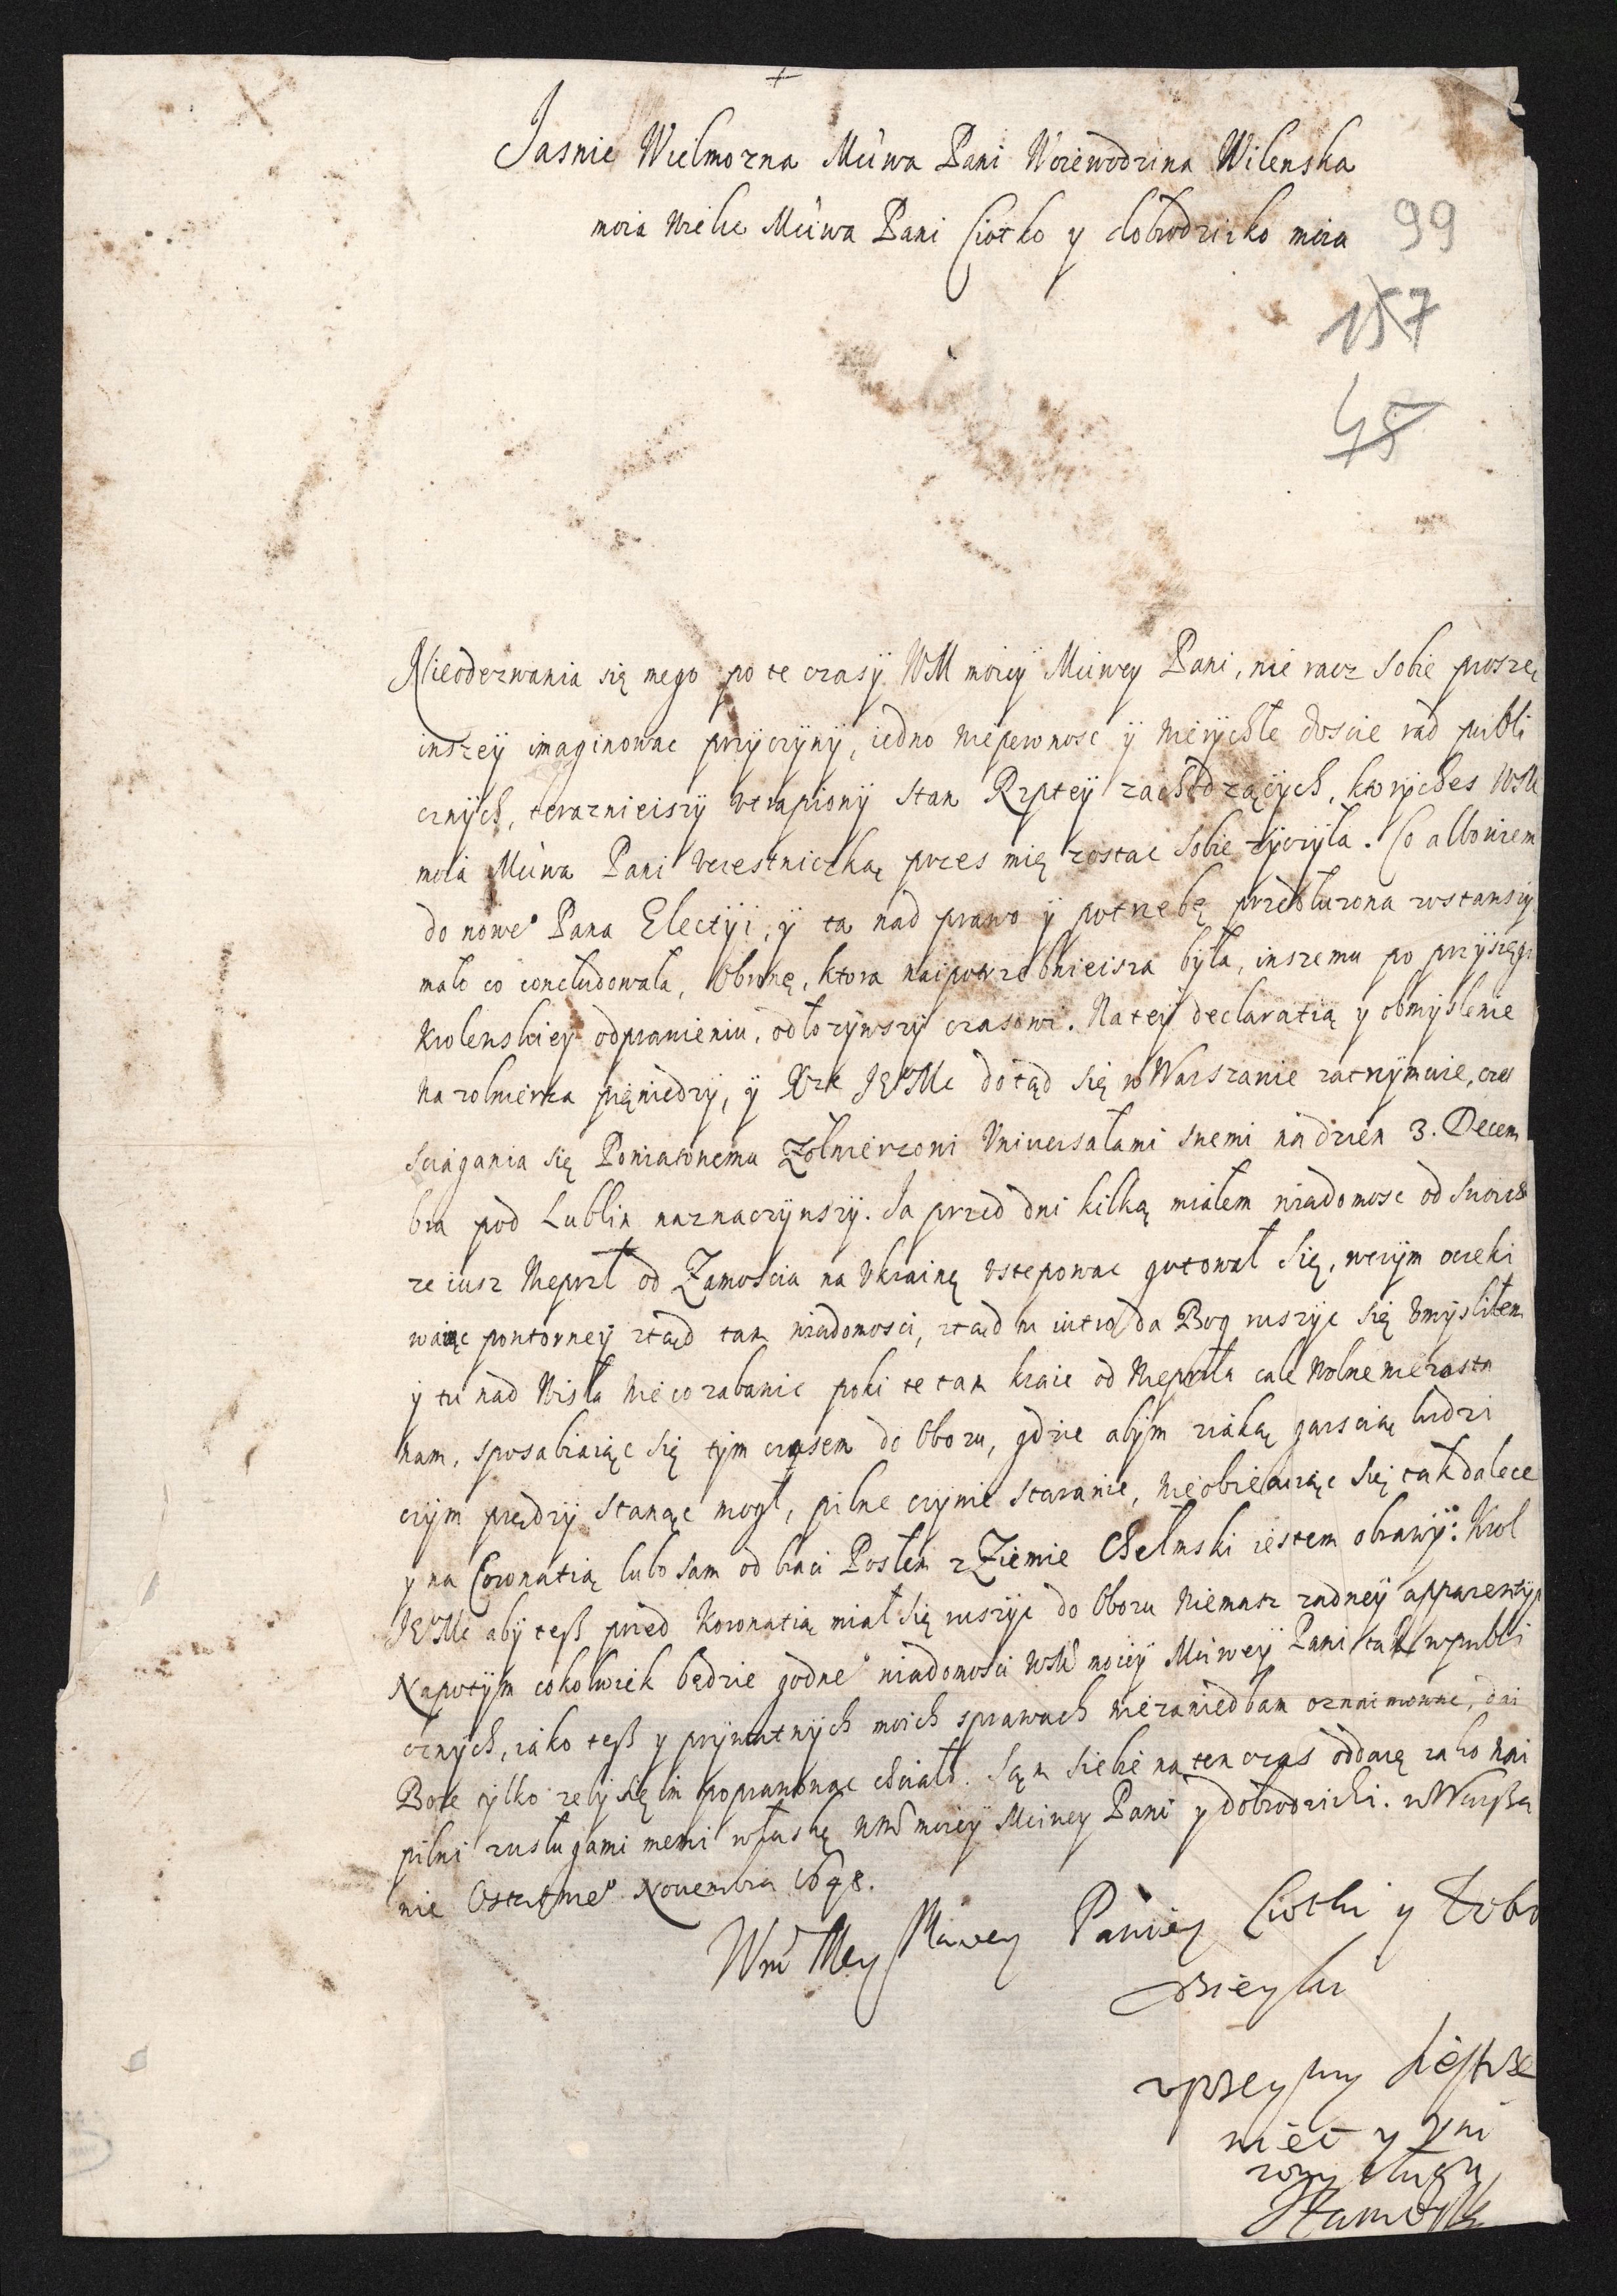 +
Jasnie Wielmozna Mciwa Pani Woiewodzina Wilenska
moia Wielce Mciwa Pani Ciotko y dobrodzieiko moia
99
157
45
Nieodezwania się mego po te czasÿ WM moieÿ Mciwey Pani, nie racz sobie proszę
inszeÿ imaginowac przÿczÿnÿ, iedno niepewnosc ÿ nierÿchłe doscie rad publi
cznÿch, terazniejszÿ utrapionÿ stan Rzpteÿ zachodzącÿch, ktorÿches WM
moia Mciwa Pani uczestniczką przes mię zostac sobie zÿczÿła. Co albowiem
do nowe° Pana Electÿi, ÿ ta nad prawo ÿ potrzebę przedłuzona zostawszÿ
mało co concludowała, Obronę, ktora naipotrzebnieisza była, inszemu po przÿsięgi
Krolewskieÿ odprawieniu, odłozÿwszÿ czasowi. Na teÿ declaratią y obmÿslenie
na zolnierza pięniedzÿ, ÿ Krl JEoMc dotąd się w Warszawie zatrzÿmuie, czas
sciągania się Poniatowemu Zołnierzowi Uniuersałami swemi na dzien 3. Decem
bra pod Lublin naznaczÿwszÿ. Ja przed dni kilką miałem wiadomosc od swoich
ze iusz Nieprzl od Zamoscia na Ukrainę ustepowac gotował się, w czÿm oczeki
waiąc powtorneÿ ztąd tam wiadomosci, ztąd na iutro da Bog ruszÿc się umÿsliłem
ÿ tu nad Wisłą nieco zabawic poki te tam kraie od Nieprzla cale Wolne nie zosta
nam, sposabiaiąc się tÿm czasem do Obozu, gdzie abÿm ziaką garscią ludzi
czÿm prędzÿ stanąc mogł, pilne czÿnie staranie, nie obiecuiąc się tak dalece
y na Coronatią lubo sam od braci Posłem z Ziemie Chełmski iestem obranÿ: Krol
JEoMc abÿ tesz przed Koronatią miał się ruszÿc do Obozu niemasz zadneÿ apparentÿ
Napotÿm cokolwiek będzie godne° wiadomosci WM moieÿ Mciweÿ Pani tak w publi
cznÿch, iako tesz y prÿwatnÿch moich sprawach nie zaniedbam oznaimowac, dai
Boze tÿlko zebÿ się im poprawowac chciało. Sąm siebie na ten czas oddaię iako nai
pilni z usługami memi w łaskę WM moieÿ Mciwey Pani y dobrodzieiki. w Warsza
wie Ostatnie° Novembra 1648.
Wm Mey Mciwey Paniey Ciotki y Dobro
dzieyki
uprzeymy siestrze
niec y uni
zony sługa